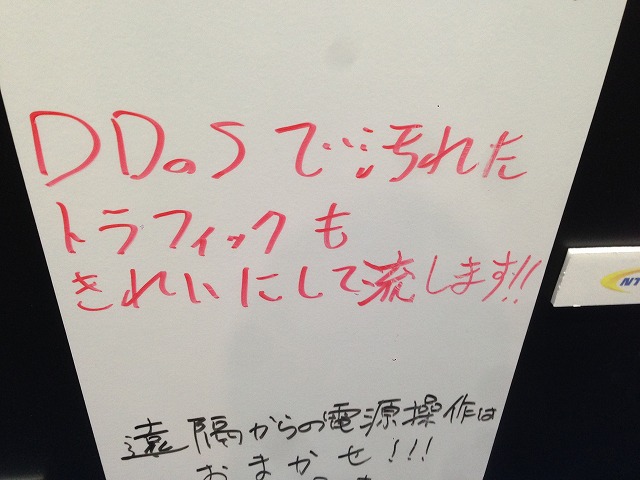 DDoSで汚れた
トラフィックも
きれいにして流します!!
NT
遠隔からの電源操作は
おまかせ!!!